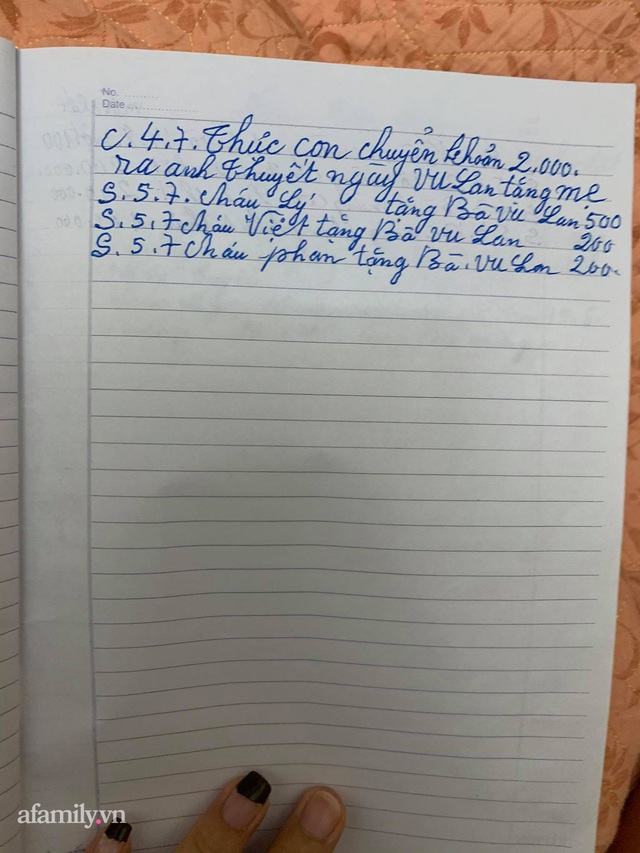 No.
Date
C. 4. 7. Thức con chuyển khoản 2.000.
ra anh Thuyết ngay Vu Lan tặng mẹ
S. 5. 7. cháu Lý tặng Bà Vu Lan 500
S. 5. 7 cháu Việt tặng Bà Vu Lan 200
S. 5. 7 cháu phan tặng Bà. Vu Lan 200.
afamily.vn